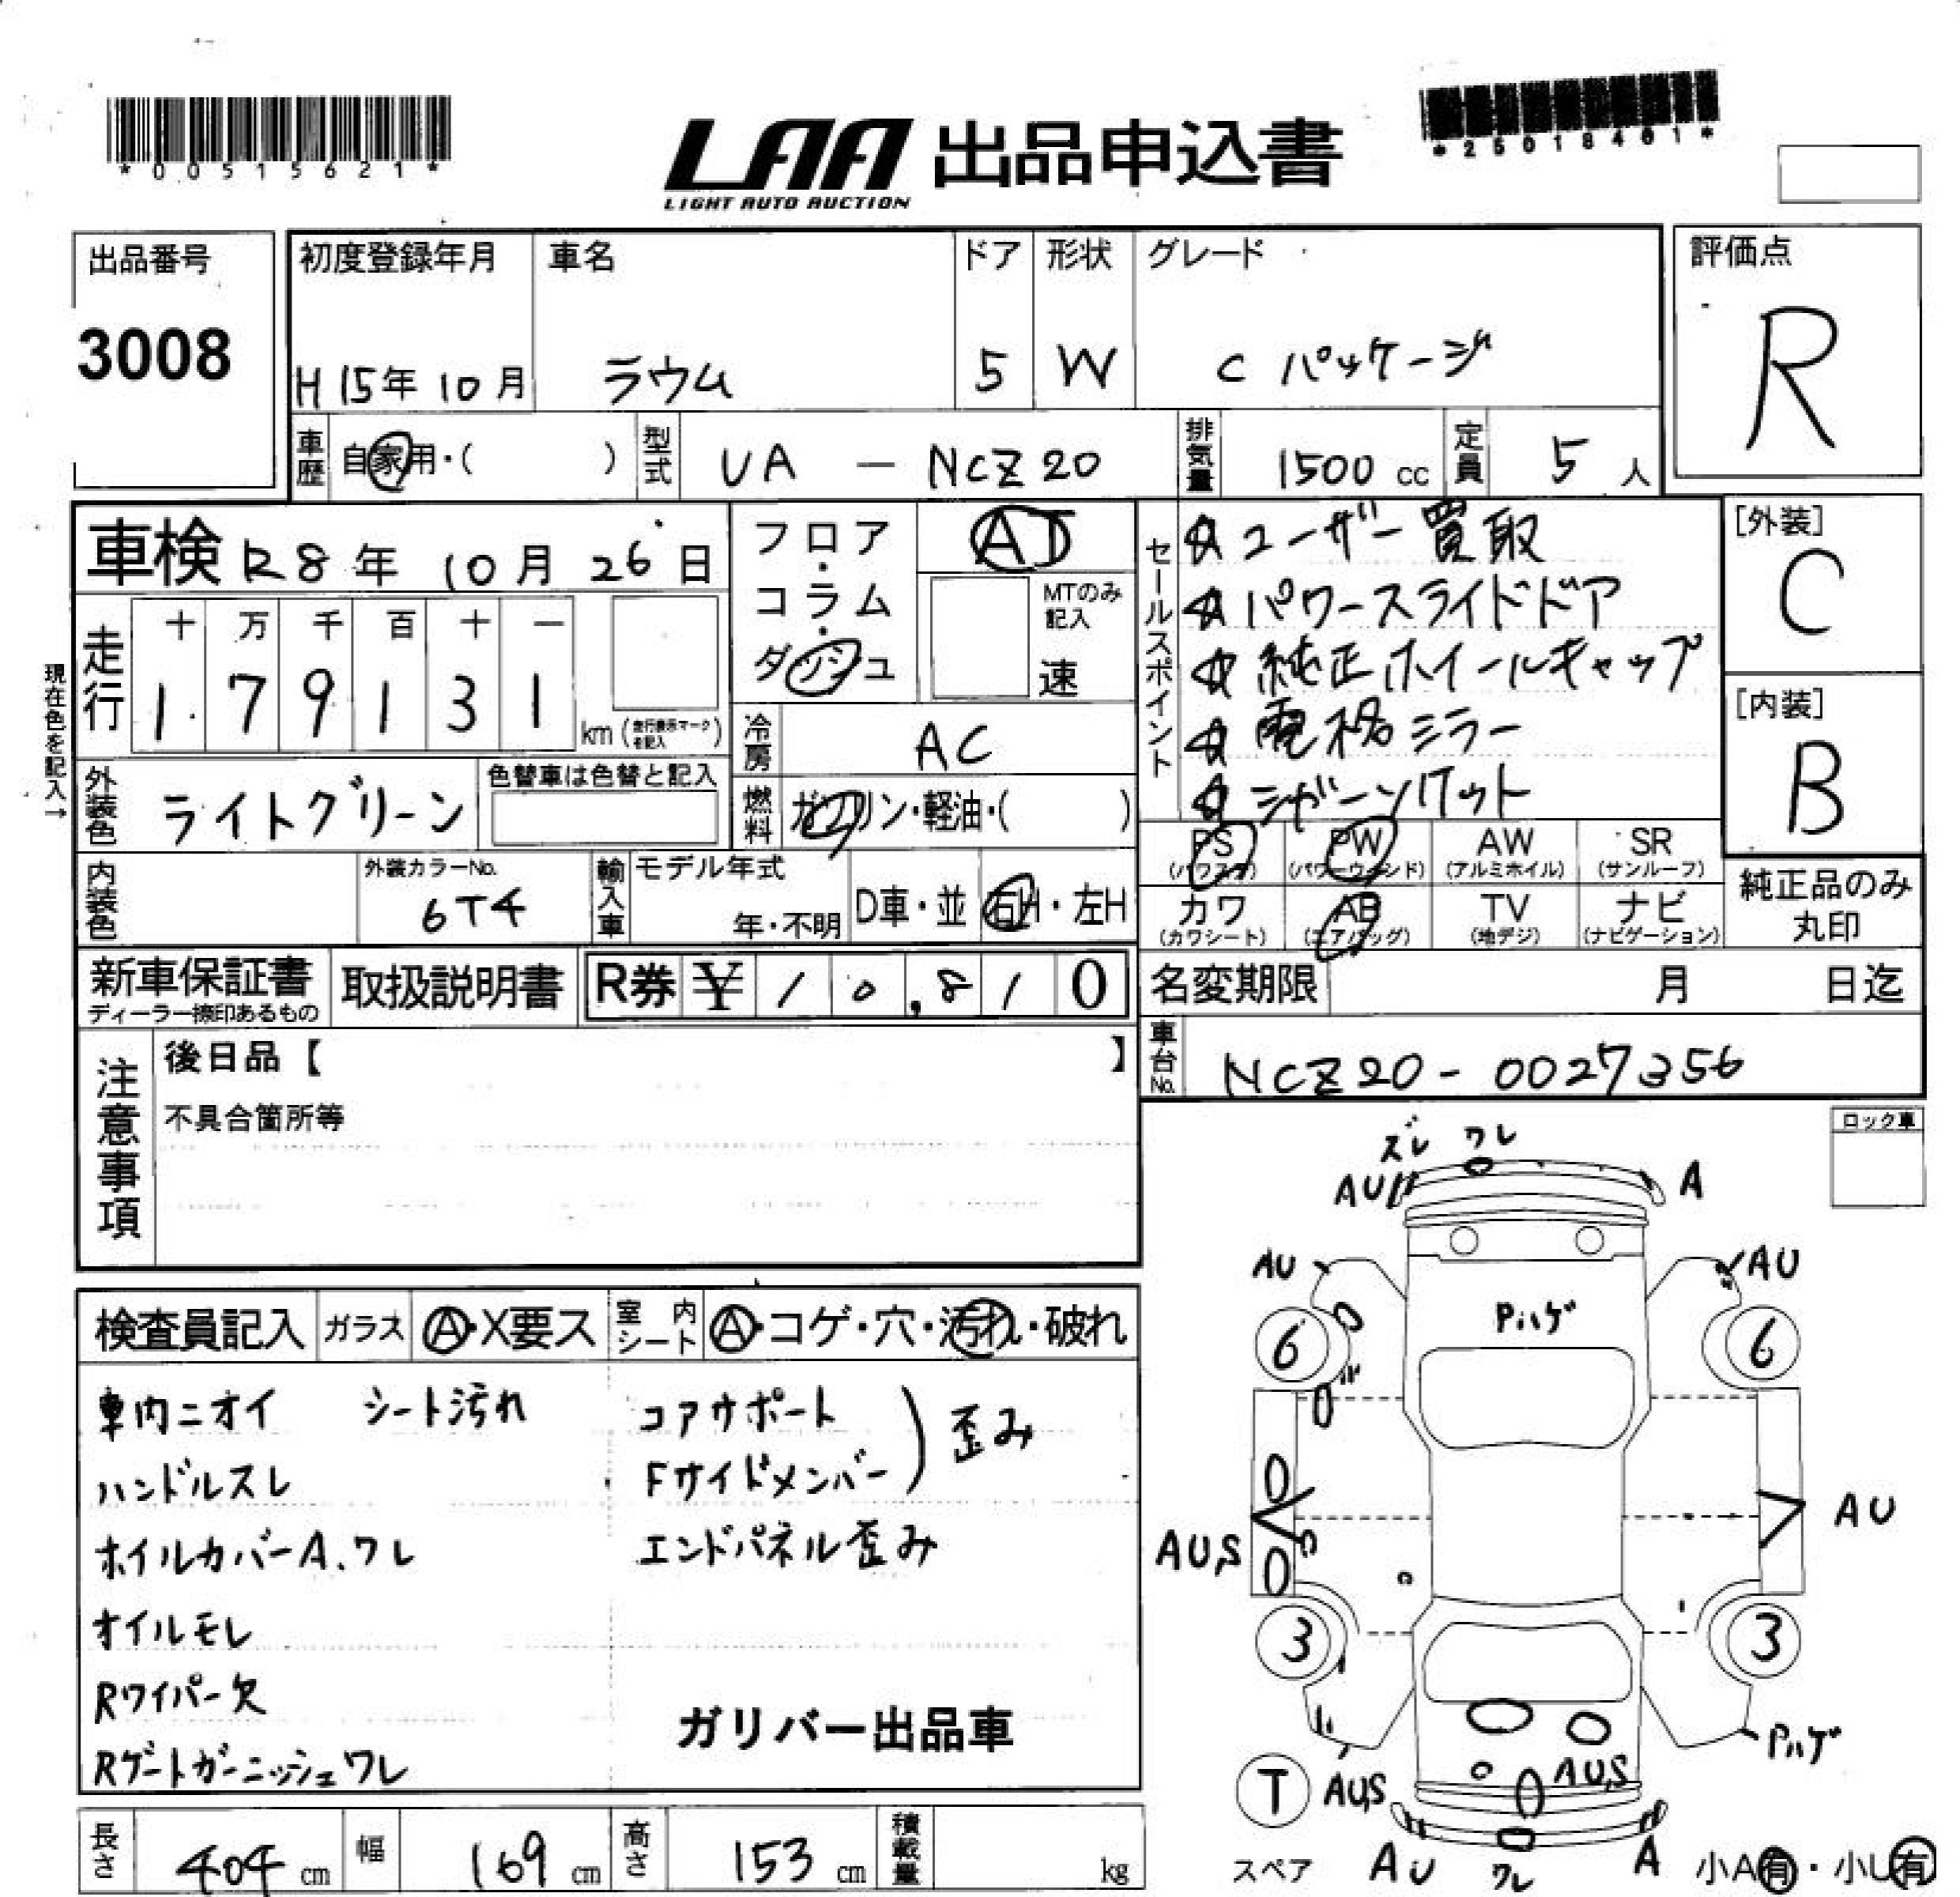 *00515621*
LAA 出品申込書
LIGHT AUTO AUCTION
*25018401*
出品番号
3008
初度登録年月
H15年10月
車名
ラウム
ドア
5
形状
W
グレード
C パッケージ
評価点
R
車歴
自家用・( )
型式
UA — NCZ20
排気量
1500 cc
定員
5 人
車検 R8年 10月 26日
フロア・コラム・ダッシュ
AT
MTのみ記入
速
セールスポイント
☆ユーザー買取
☆パワースライドドア
☆純正ホイールキャップ
☆電格ミラー
☆シガーソケット
[外装]
C
[内装]
B
現在色を記入→
走行
十 万 千 百 十 一
1 7 9 1 3 1
km (走行表示マークを記入)
冷房
AC
外装色
ライトグリーン
色替車は色替と記入
燃料
ガソリン・軽油・( )
PS (パワステ)
PW (パワーウィンド)
AW (アルミホイル)
SR (サンルーフ)
カワ (カワシート)
AB (エアバッグ)
TV (地デジ)
ナビ (ナビゲーション)
純正品のみ
丸印
内装色
外装カラーNo.
6T4
輸入車
モデル年式
年・不明
D車・並
右H・左H
新車保証書
ディーラー捺印あるもの
取扱説明書
R券 ¥ 10,810
名変期限 月 日迄
車台No.
NCZ20-0027356
注意事項
後日品【 】
不具合箇所等
ロック車
検査員記入
ガラス
A・X要ス
室内シート
A・コゲ・穴・汚れ・破れ
車内ニオイ シート汚れ
ハンドルスレ
ホイルカバーA.ワレ
オイルモレ
Rワイパー欠
Rゲートガーニッシュワレ
コアサポート
Fサイドメンバー ) 歪み
エンドパネル歪み
ガリバー出品車
ズレ ワレ
AU A
AU AU
Pハゲ
6 6
AU,S AU
3 3
Pハゲ
T AU,S AU,S
スペア AU ワレ A
小A有・小U有
長さ 404 cm
幅 169 cm
高さ 153 cm
積載量 kg